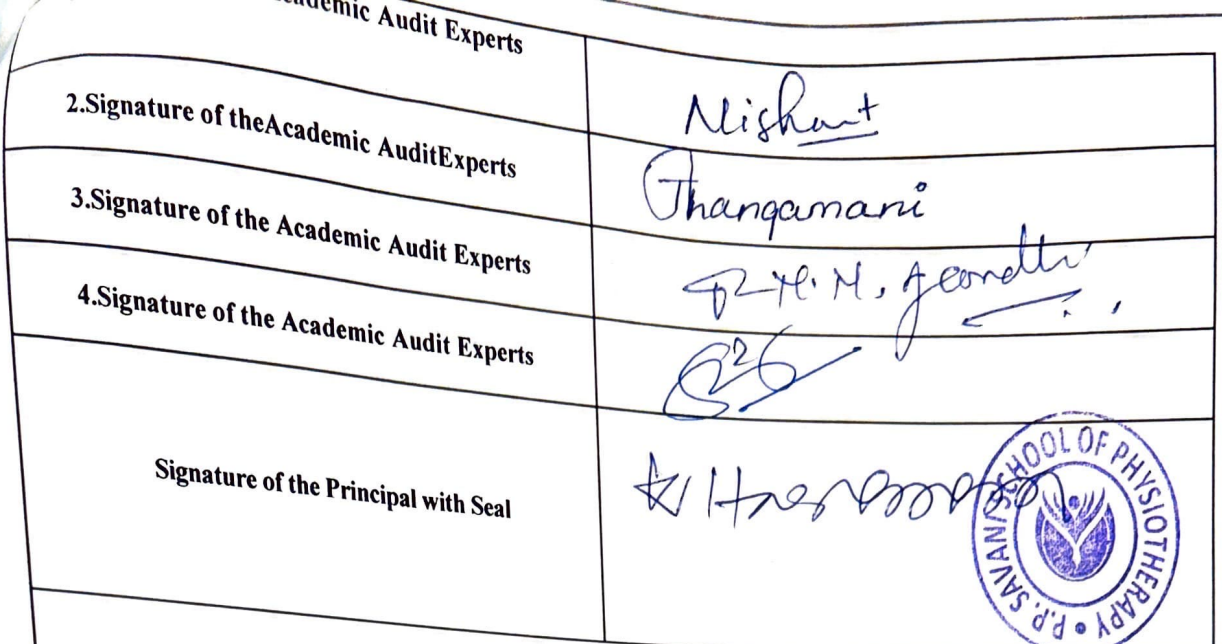 Academic Audit Experts
Nishant
2.Signature of theAcademic AuditExperts
Thangamani
3.Signature of the Academic Audit Experts
4.Signature of the Academic Audit Experts
Signature of the Principal with Seal
P.P. SAVANI SCHOOL OF PHYSIOTHERAPY